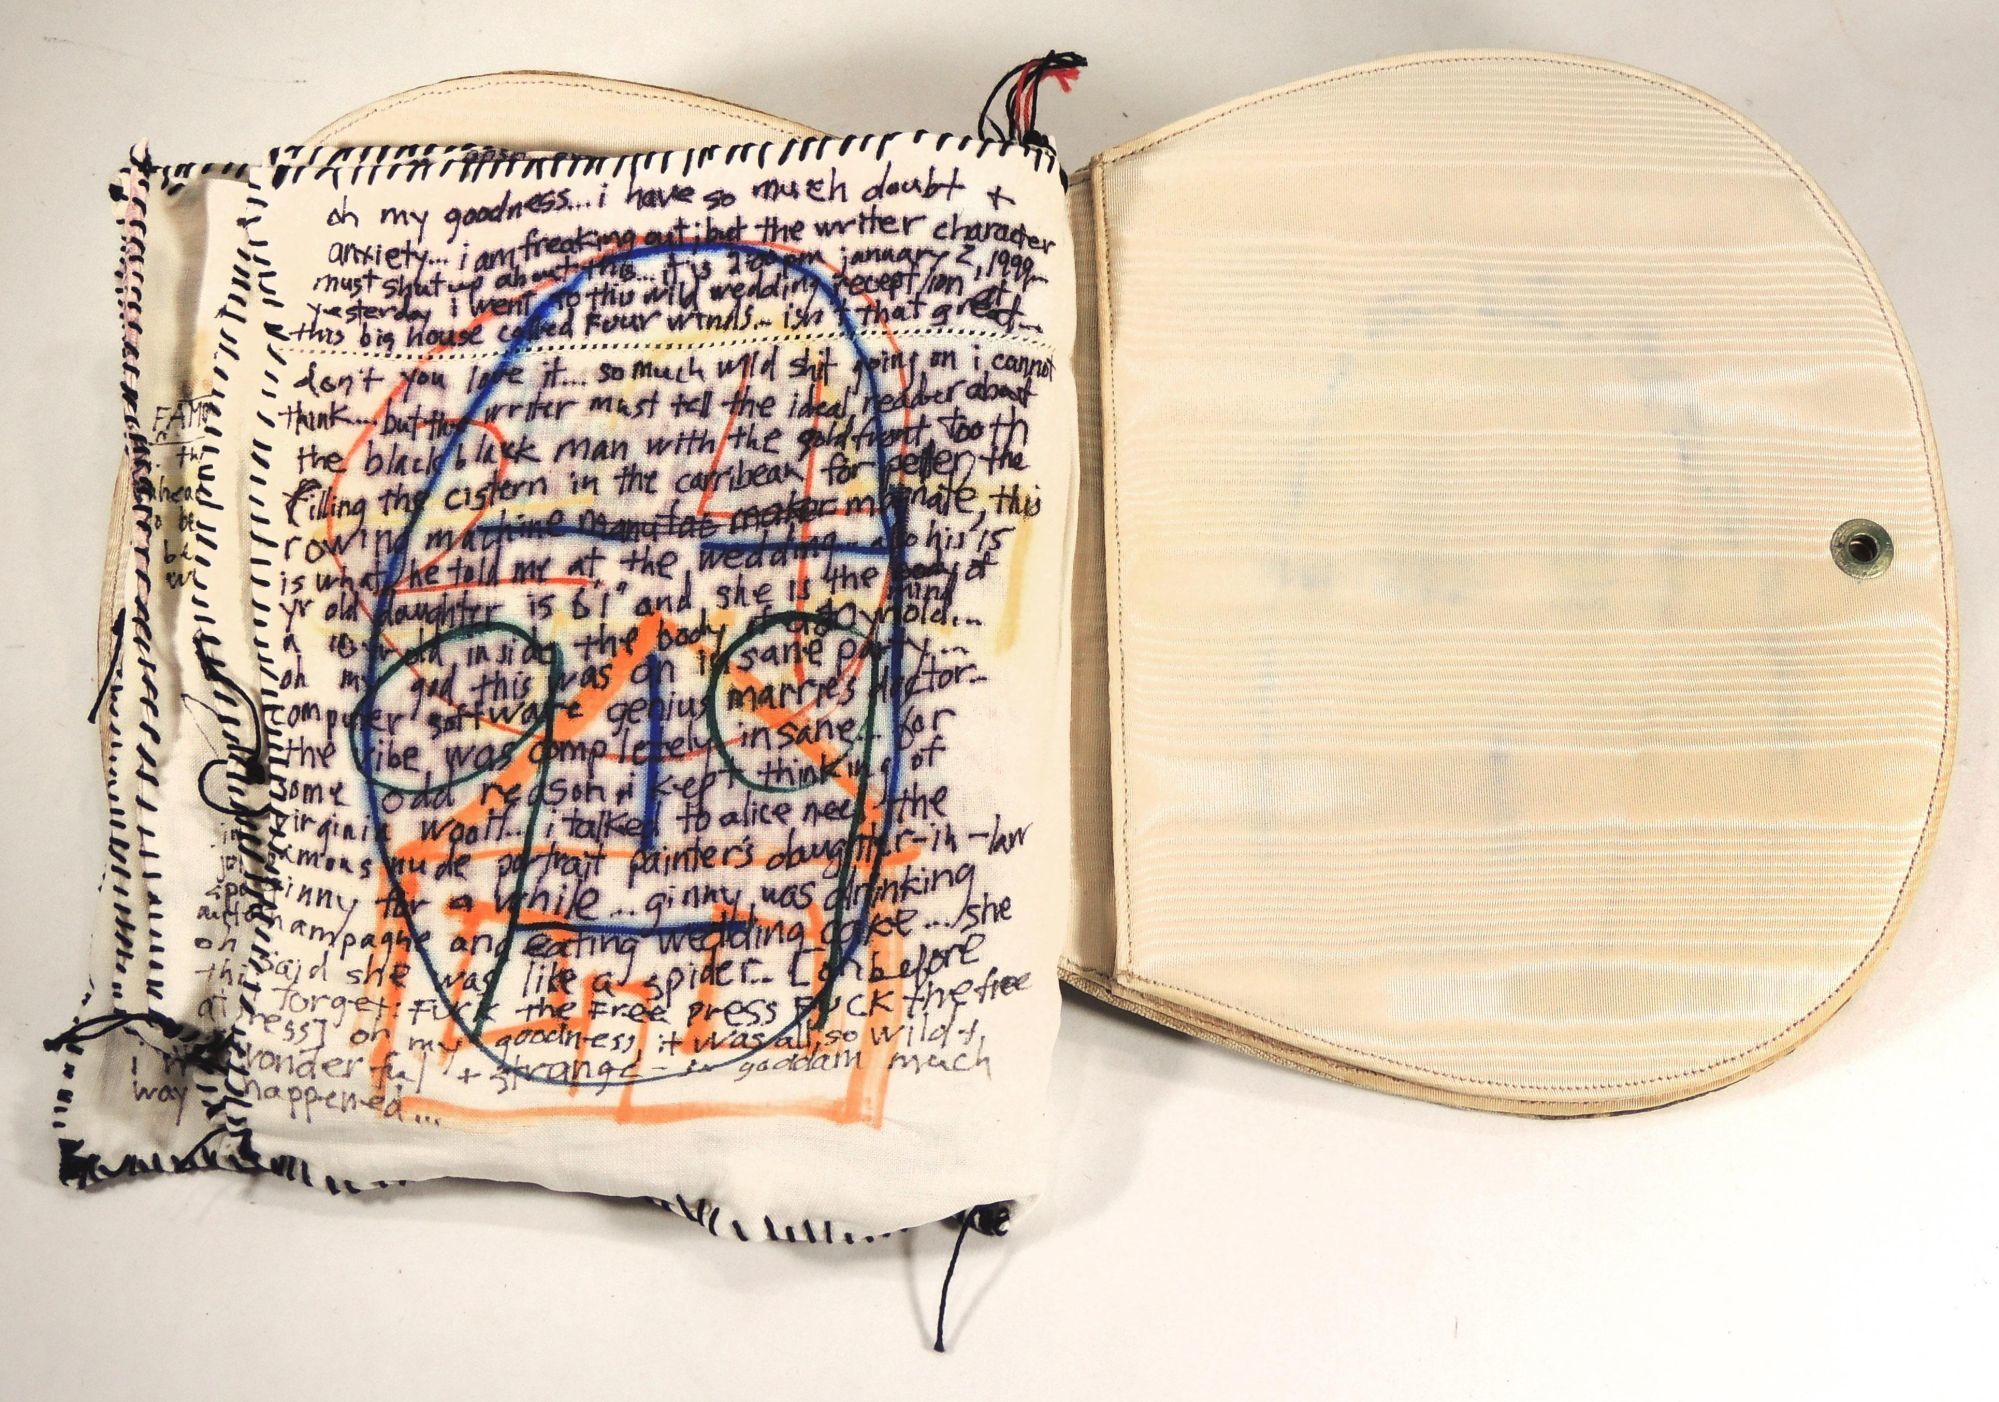 oh my goodness...i have so much doubt +
anxiety... i am freaking out; but the writer character
must shut up about this... it is 2:00 pm january 2, 1999
yesterday i went to this wild wedding reception at
this big house called Four Winds... isn't that great...
don't you love it... so much wild shit going on i cannot
think... but the writer must tell the ideal reader about
the black black man with the gold front tooth
filling the cistern in the carribean for the
rowing machine manufac maker magnate, this
is what he told me at the wedding... his
yr old daughter is 6'1" and she is the body of
a yr old inside the body of a 40 yr old... mind
oh my god this was on insane party...
computer software genius marries doctor...
the vibe was completely insane... for
some odd reason i kept thinking of
virginia woolf... i talked to alice neel the
famous nude portrait painter's daughter-in-law
ginny for a while... ginny was drinking
champagne and eating wedding cake... she
said she was like a spider... [on before
i forget: Fuck the Free press Fuck the free
press] oh my goodness it was all so wild +
wonderful + strange - so goddam much
happened...
FAM
ahea
on
way